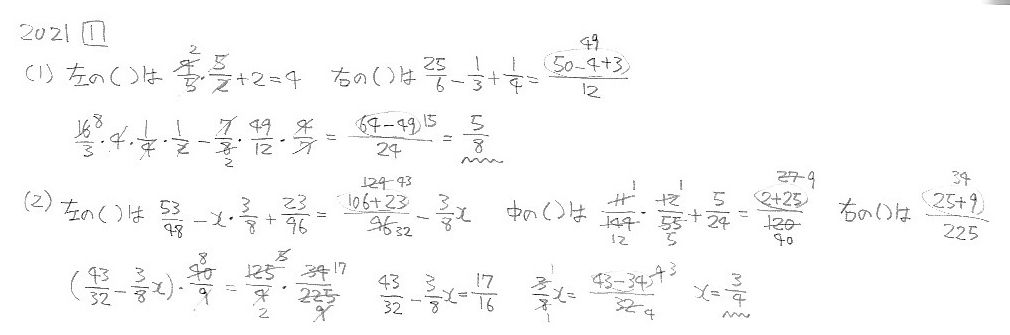 2021 1
(1) 左の( )は 4/5・5/2+2=4 右の( )は 25/6-1/3+1/4=(50-4+3)/12 49
16/3・4・1/4・1/2-7/8・49/12・4/7=(64-49)/24=5/8
(2) 左の( )は 53/48-x・3/8+23/96=(106+23)/96-3/8x 中の( )は 11/144・12/55+5/24=(2+25)/120 右の( )は (25+9)/225
(43/32-3/8x)・40/9=125/4・34/225 43/32-3/8x=17/16 3/8x=(43-34)/32 x=3/4